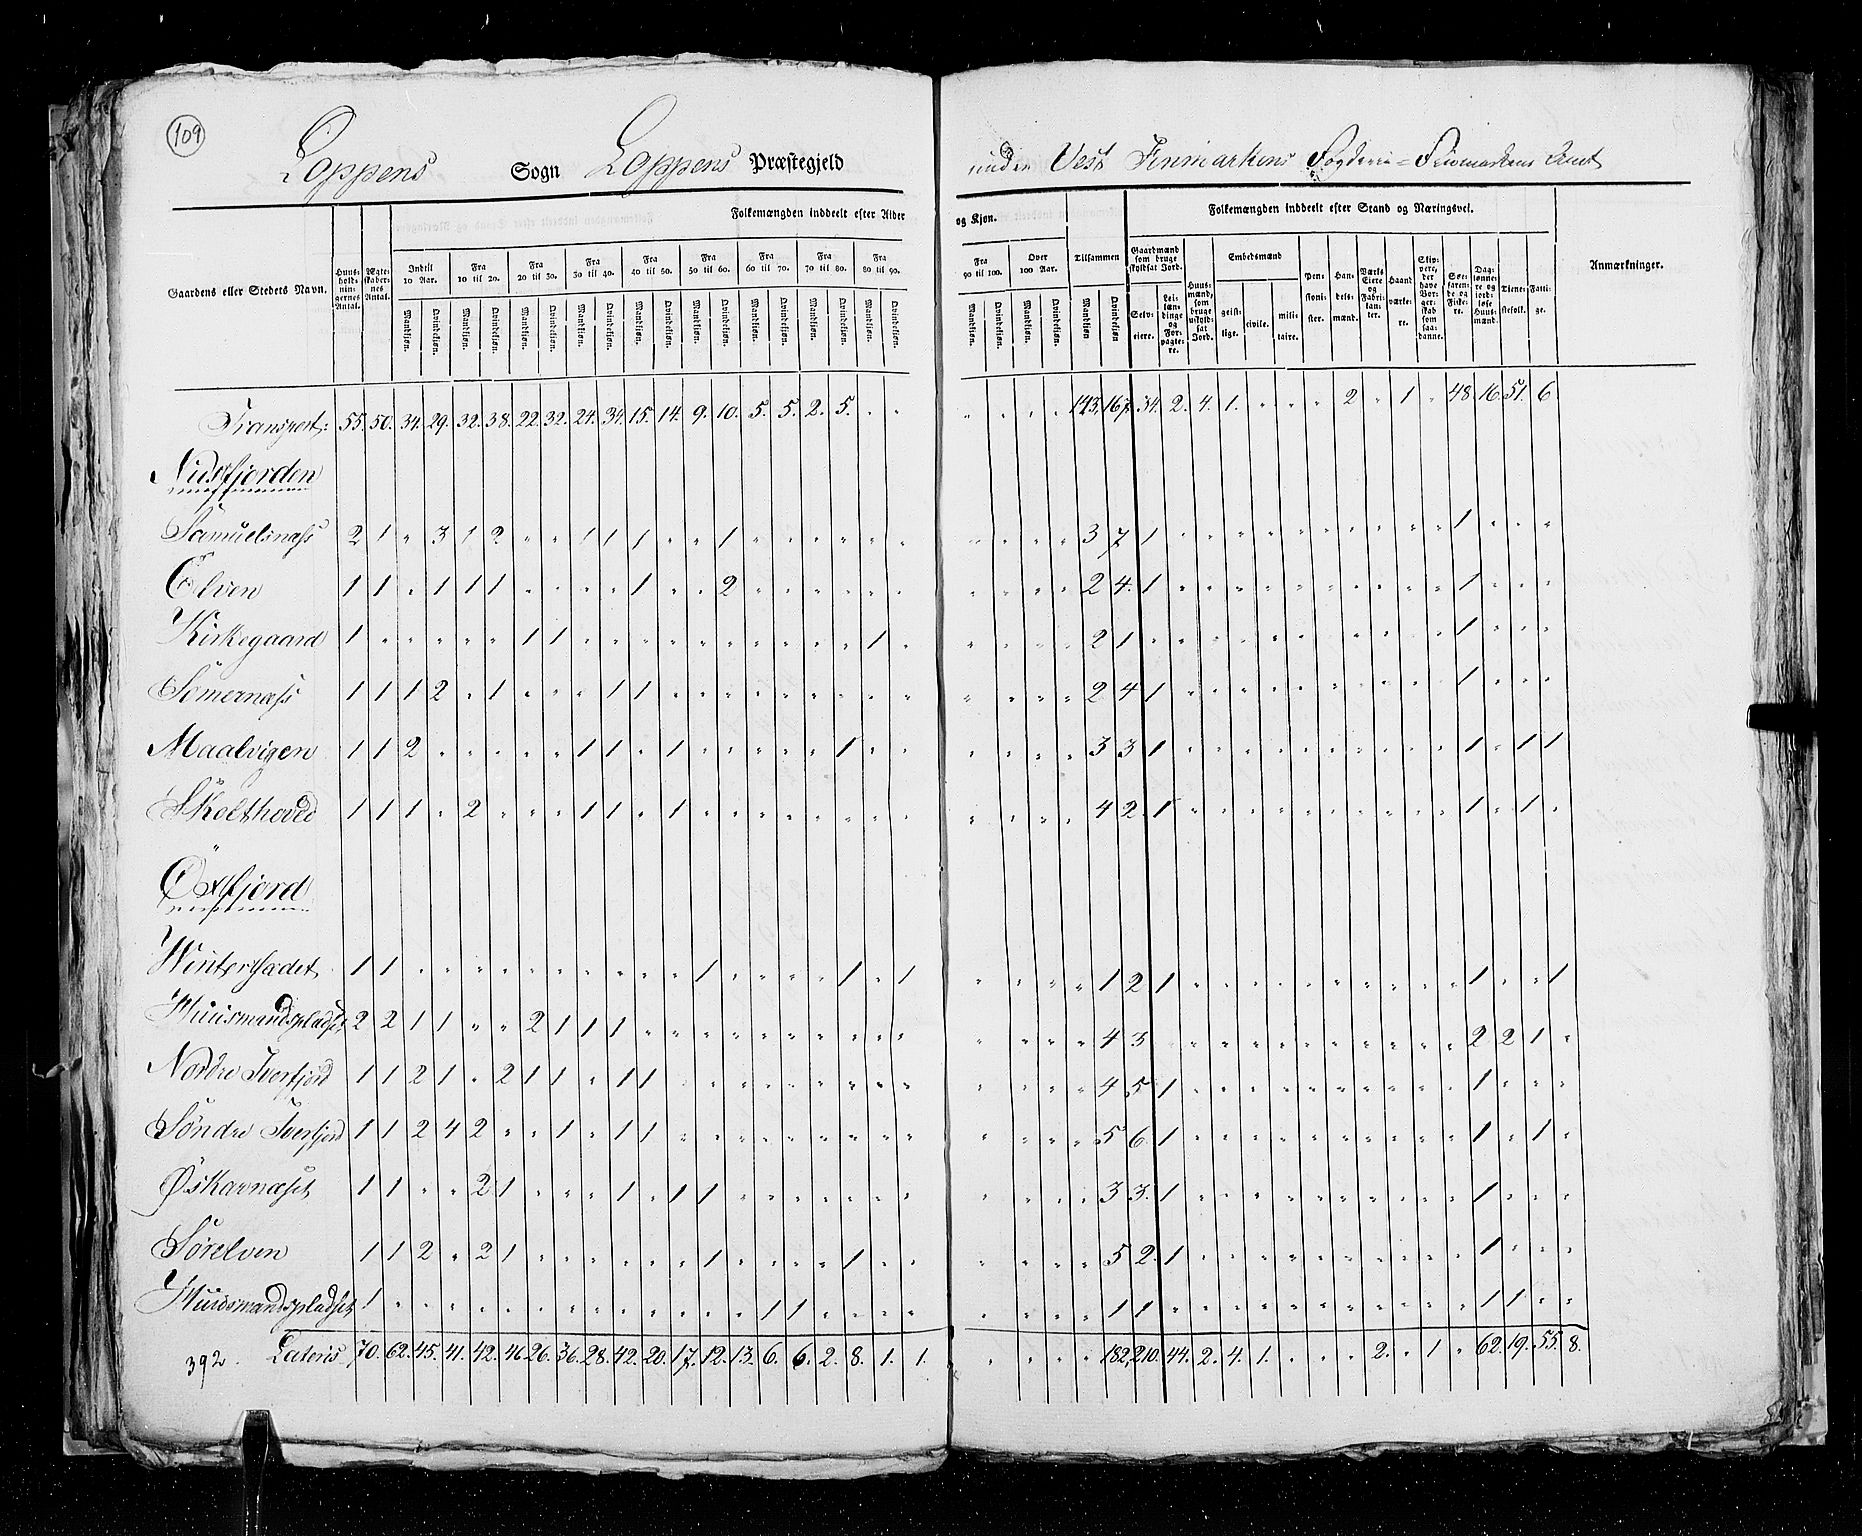 109
Loppens Sogn Loppens Præstegjeld under Vest Finmarkens Fogderie = Finmarkens Amt
Gaardens eller Stedets Navn. Huusholdningernes Antal. Ægteskabernes Antal. Folkemængden inddeelt efter Alder og Kjøn. Tilsammen Folkemængden inddeelt efter Stand og Næringsvei. Anmærkninger.
Indtil 10 Aar. Fra 10 til 20. Fra 20 til 30. Fra 30 til 40. Fra 40 til 50. Fra 50 til 60. Fra 60 til 70. Fra 70 til 80. Fra 80 til 90. Fra 90 til 100. Over 100 Aar. Gaardmænd som bruge skyldsat Jord. Huusmænd, som bruge uskyldsat Jord. Embedsmænd Pensionister. Handelsmænd. Værks Eiere og Fabrikanter. Haandværkere. Skippere, der have Borgerskab som saadanne. Søefarende og Fiskere. Daglønnere og jordløse Huusmænd. Tjenestefolk. Fattige.
Mandkjøn. Qvindekjøn. Mandkjøn. Qvindekjøn. Mandkjøn. Qvindekjøn. Mandkjøn. Qvindekjøn. Mandkjøn. Qvindekjøn. Mandkjøn. Qvindekjøn. Mandkjøn. Qvindekjøn. Mandkjøn. Qvindekjøn. Mandkjøn. Qvindekjøn. Mandkjøn. Qvindekjøn. Mandkjøn. Qvindekjøn. Mandkjøn Qvindekjøn Selveiere. Leilændinge og Forpagtere. geistlige. civile. militaire.
Transport: 55. 50. 34. 29. 32. 38. 22. 32. 24. 34. 15. 14. 9. 10. 5. 5. 2. 5. " " " " " " 143. 167. 34. 2. 4. 1. " " " 2 " 1 " 48. 16. 51. 6
Nusfjorden
Samuelsnæss 2 1 " 3 1 2 " " 1 1 1 " " 1 " " " " " " " " " " 3 7 1 " " " " " " " " " " 1 " " "
Elven 1 1 " 1 1 1 " " " " 1 " " 2 " " " " " " " " " " 2 4. 1 " " " " " " " " " " 1 " " "
Kirkegaard 1 " " " " " 1 1 " " " " " " " " " " 1 " " " " " 2 1 " " " " " " " " " " " 1 " " "
Somernæss 1 1 1 2 " 1 " " " 1 1 " " " " " " " " " " " " " 2 4 1 " " " " " " " " " " 1 " " "
Maalvigen 1 1 2 " " " " " 1 1 " 1 " " " " " 1 " " " " " " 3 3 1 " " " " " " " " " " 1 " 1 1
Skolthoved 1 1 1 " 2 " " " 1 1 " 1 " " " " " " " " " " " " 4 2. 1 " " " " " " " " " " 1 " 1 "
Öxfjord
Wintersadet 1 1 " " " " " " " " " " 1 " " " " 1 " 1 " " " " 1 2 1 " " " " " " " " " " 1 " " 1
Huusmandspladset 2 2 1 1 " " 2 1 1 1 " " " " " " " " " " " " " " 4 3 " " " " " " " " " " " 2 2 1 "
Nordre Tverfjord 1 1 2 1 " 2 1 1 " 1 1 " " " " " " " " " " " " " 4 5 1 " " " " " " " " " " 1 " " "
Søndre Tverfjord 1 1 2 4 2 " " 1 " 1 1 " " " " " " " " " " " " " 5 6 1 " " " " " " " " " " 1 " 1 "
Øskarnæset 1 1 " " 2 1 " " " 1 " 1 1 " " " " " " " " " " " 3 3. 1 " " " " " " " " " " 1 " " "
Sørelven 1 1 2 " 2 1 " " " " " " 1 " " " " 1 " " " " " " 5 2. 1 " " " " " " " " " " 1 " " "
Huusmandspladset 1 " " " " " " " " " " " " " 1 1 " " " " " " " " 1 1 " " " " " " " " " " " 1 1 " "
392. Lateris 70. 62. 45. 41. 42. 46. 26. 36. 28. 42. 20. 17. 12. 13. 6. 6. 2. 8. 1. 1. " " " " 182. 210. 44. 2. 4. 1. " " " 2. " 1 " 62. 19. 55. 8.